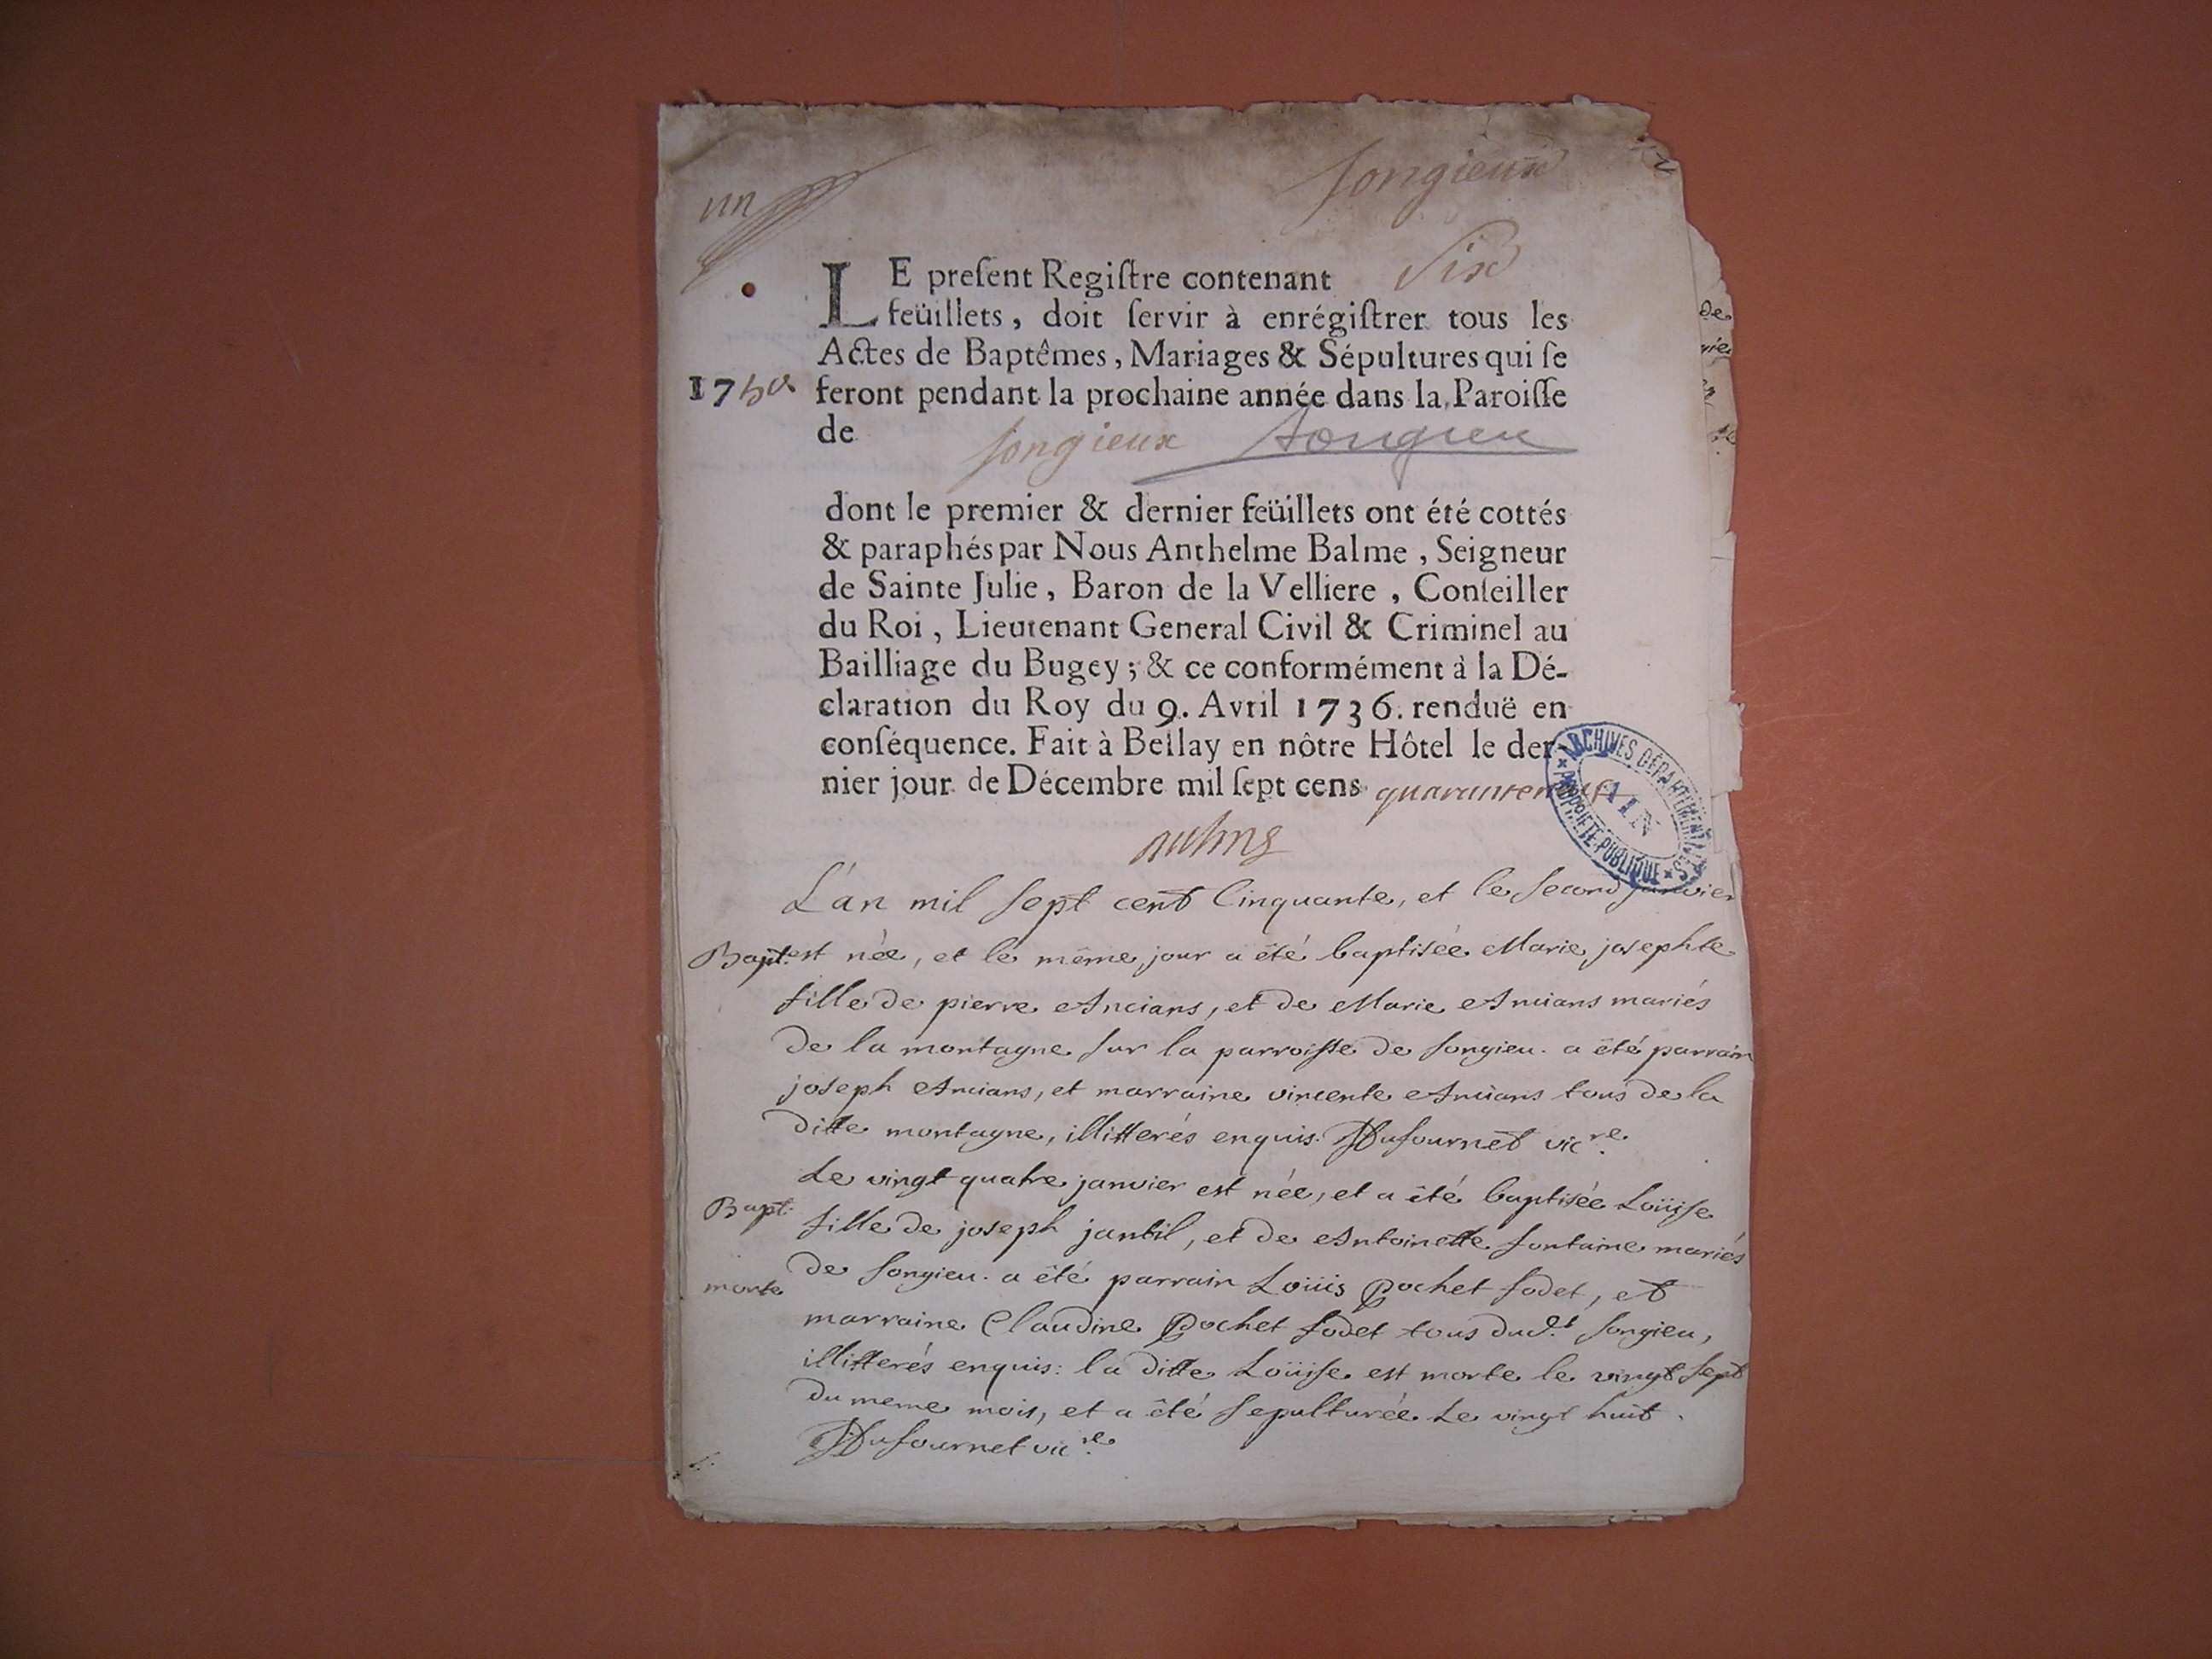 un
Songieux
Six
LE preſent Regiſtre contenant
feüillets, doit ſervir à enrégiſtrer tous les
Actes de Baptêmes, Mariages & Sépultures qui ſe
1750 feront pendant la prochaine année dans la Paroiſſe
de Songieux Songieu
dont le premier & dernier feüillets ont été cottés
& paraphés par Nous Anthelme Balme, Seigneur
de Sainte Julie, Baron de la Velliere, Conſeiller
du Roi, Lieutenant General Civil & Criminel au
Bailliage du Bugey; & ce conformément à la Dé-
claration du Roy du 9. Avril 1736. renduë en
conſéquence. Fait à Bellay en nôtre Hôtel le der-
nier jour de Décembre mil ſept cens quaranteneuf
ARCHIVES DÉPARTEMENTALES
AIN
PROPRIÉTÉ PUBLIQUE
L'an mil sept cent Cinquante, et le second janvier
Bapt. est née, et le même jour a été baptisée Marie josephte
fille de pierre Ancians, et de Marie Ancians mariés
de la montagne sur la parroisse de songieu. a été parrain
joseph Ancians, et marraine vincente Ancians tous de la
ditte montagne, illitterés enquis. Dufournet vicre.
Le vingt quatre janvier est née, et a été baptisée Loüise
Bapt. fille de joseph jantil, et de Antoinette fontaine mariés
morte de songieu. a été parrain Loüis Pochet fodet, et
marraine Claudine Pochet fodet tous dud.t songieu,
illitterés enquis: la ditte Loüise est morte le vingt sept
du meme mois, et a été sepulturée Le vingt huit.
Dufournet vicre.